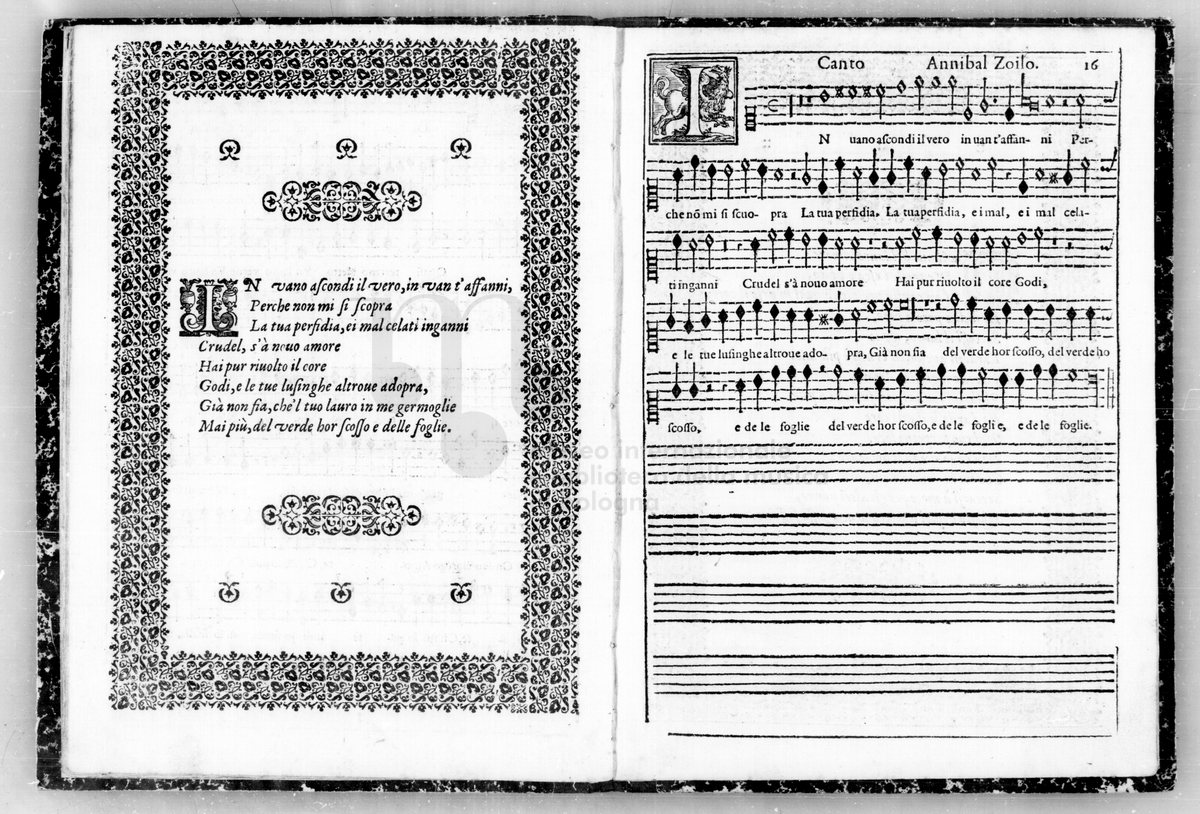 IN vano ascondi il vero, in van t'affanni,
Perche non mi si scopra
La tua perfidia, ei mal celati inganni
Crudel, s'à nouo amore
Hai pur riuolto il core
Godi, e le tue lusinghe altroue adopra,
Già non fia, che'l tuo lauro in me germoglie
Mai più, del verde hor scosso e delle foglie.
Canto Annibal Zoilo. 16
IN uano ascondi il vero in uan t'affan- ni Per-
che nõ mi si scuo- pra La tua perfidia. La tua perfidia, e i mal, e i mal cela-
ti inganni Crudel s'à nouo amore Hai pur riuolto il core Godi,
e le tue lusinghe altroue ado- pra, Già non fia del verde hor scosso, del verde ho
scosso, e de le foglie del verde hor scosso, e de le foglie, e de le foglie.
museo internazionale
biblioteca della musica
bologna